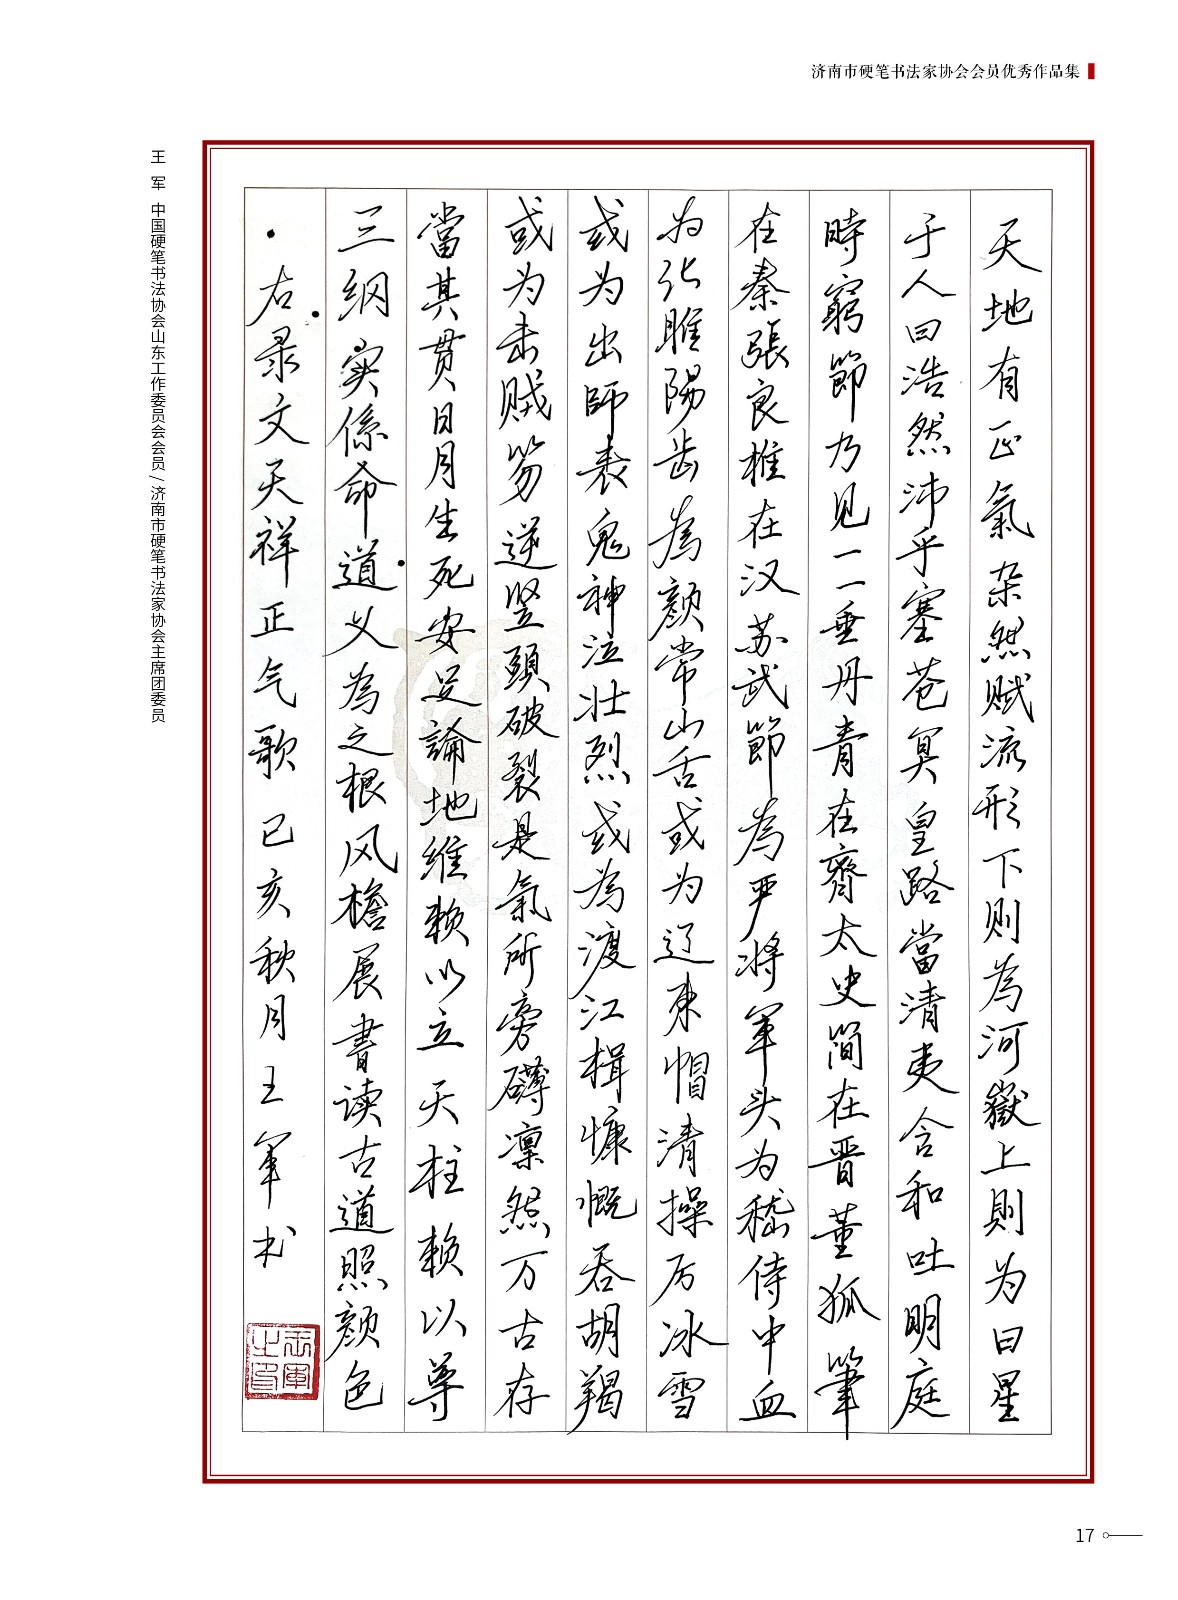 济南市硬笔书法家协会会员优秀作品集
天地有正氣杂然赋流形下则為河嶽上則为日星
于人曰浩然沛乎塞苍冥皇路當清夷含和吐明庭
時窮節乃见一一垂丹青在齊太史简在晋董狐筆
在秦張良椎在汉苏武節為严将軍头为嵇侍中血
为张睢陽齿為颜常山舌或为辽东帽清操厉冰雪
或为出師表鬼神泣壮烈或為渡江楫慷慨吞胡羯
或为击贼笏逆竖頭破裂是氣所旁礴凛然万古存
當其贯日月生死安足論地维赖以立天柱赖以尊
三纲实係命道义為之根风檐展書读古道照颜色
右录文天祥正气歌己亥秋月王軍书
王軍之印
王 军 中国硬笔书法协会山东工作委员会会员/济南市硬笔书法家协会主席团委员
17